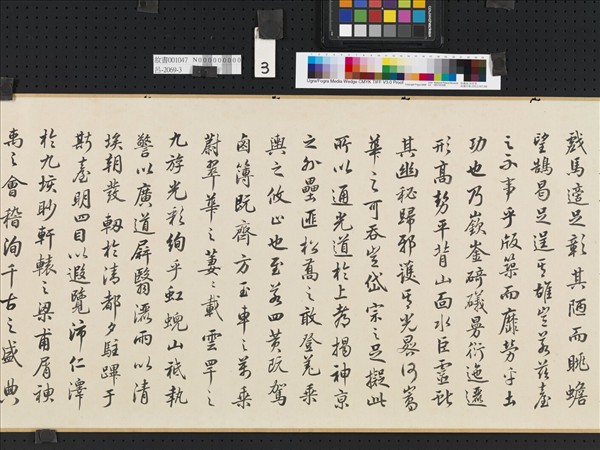 故書001047 N000000000
呂-2069-3
3
UgraFogra Media Wedge CMYK TIFF V3.0 Proof
戲馬適足彰其陋而眺蟾
望鵠曷足逞其雄豈若茲臺
之不事乎版築而靡勞乎土
功也乃嶔崟碕礒曼衍迤邐
形高勢平背山面水巨靈
其幽秘歸邪護其光晷何嵩
華之可吞豈岱宗之足擬此
所以通光道於上考揭神京
之外壘匪松高之敢登羌乘
輿之攸止也至若四黃既駕
鹵簿既齊方玉車之萬乘
蔚翠華之萋萋載雲罕之
九斿光彩絢乎虹蜺山祇執
警以廣道屏翳灑雨以清
埃朝發軔於清都夕駐蹕于
斯臺明四目以遐覽沛仁澤
於九垓眇軒轅之梁甫屑
禹之會稽洵千古之盛典